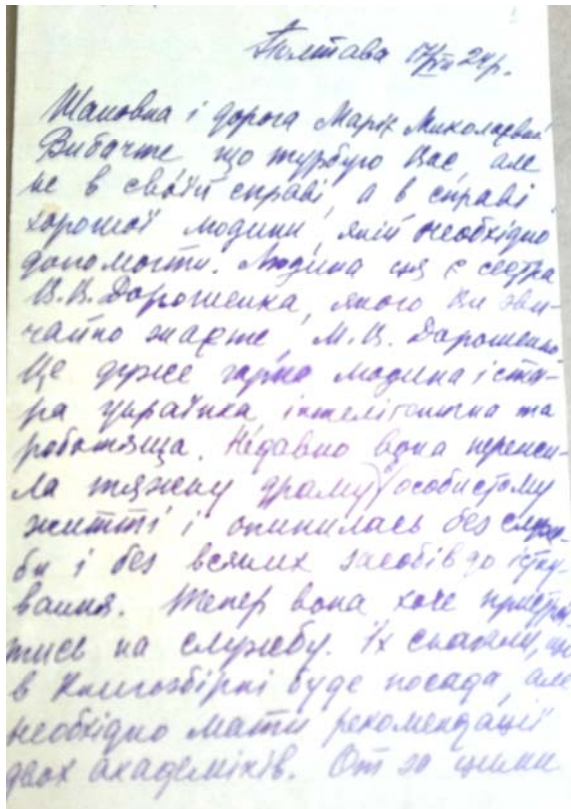 Полтава 17/VII 24р.
Шановна і дорога Маріє Миколаєвно
Вибачте, що турбую Вас, але
не в своїй справі, а в справі
хорошої людини, якій необхідно
допомогти. Людина ця є сестра
В.В. Дорошенка, якого Ви зви-
чайно знаєте, М.В. Дорошенко
Це дуже гарна людина і ста-
ра українка, інтелігентна та
роботяща. Недавно вона перенес-
ла тяжку драму в особистому
житті і опинилась без служ-
би і без всяких засобів до існу-
вання. Тепер вона хоче пристрої-
тись на службу. Їй сказали, що
в Книгозбірні буде посада, але
необхідно мати рекомендації
двох академіків. От за цими